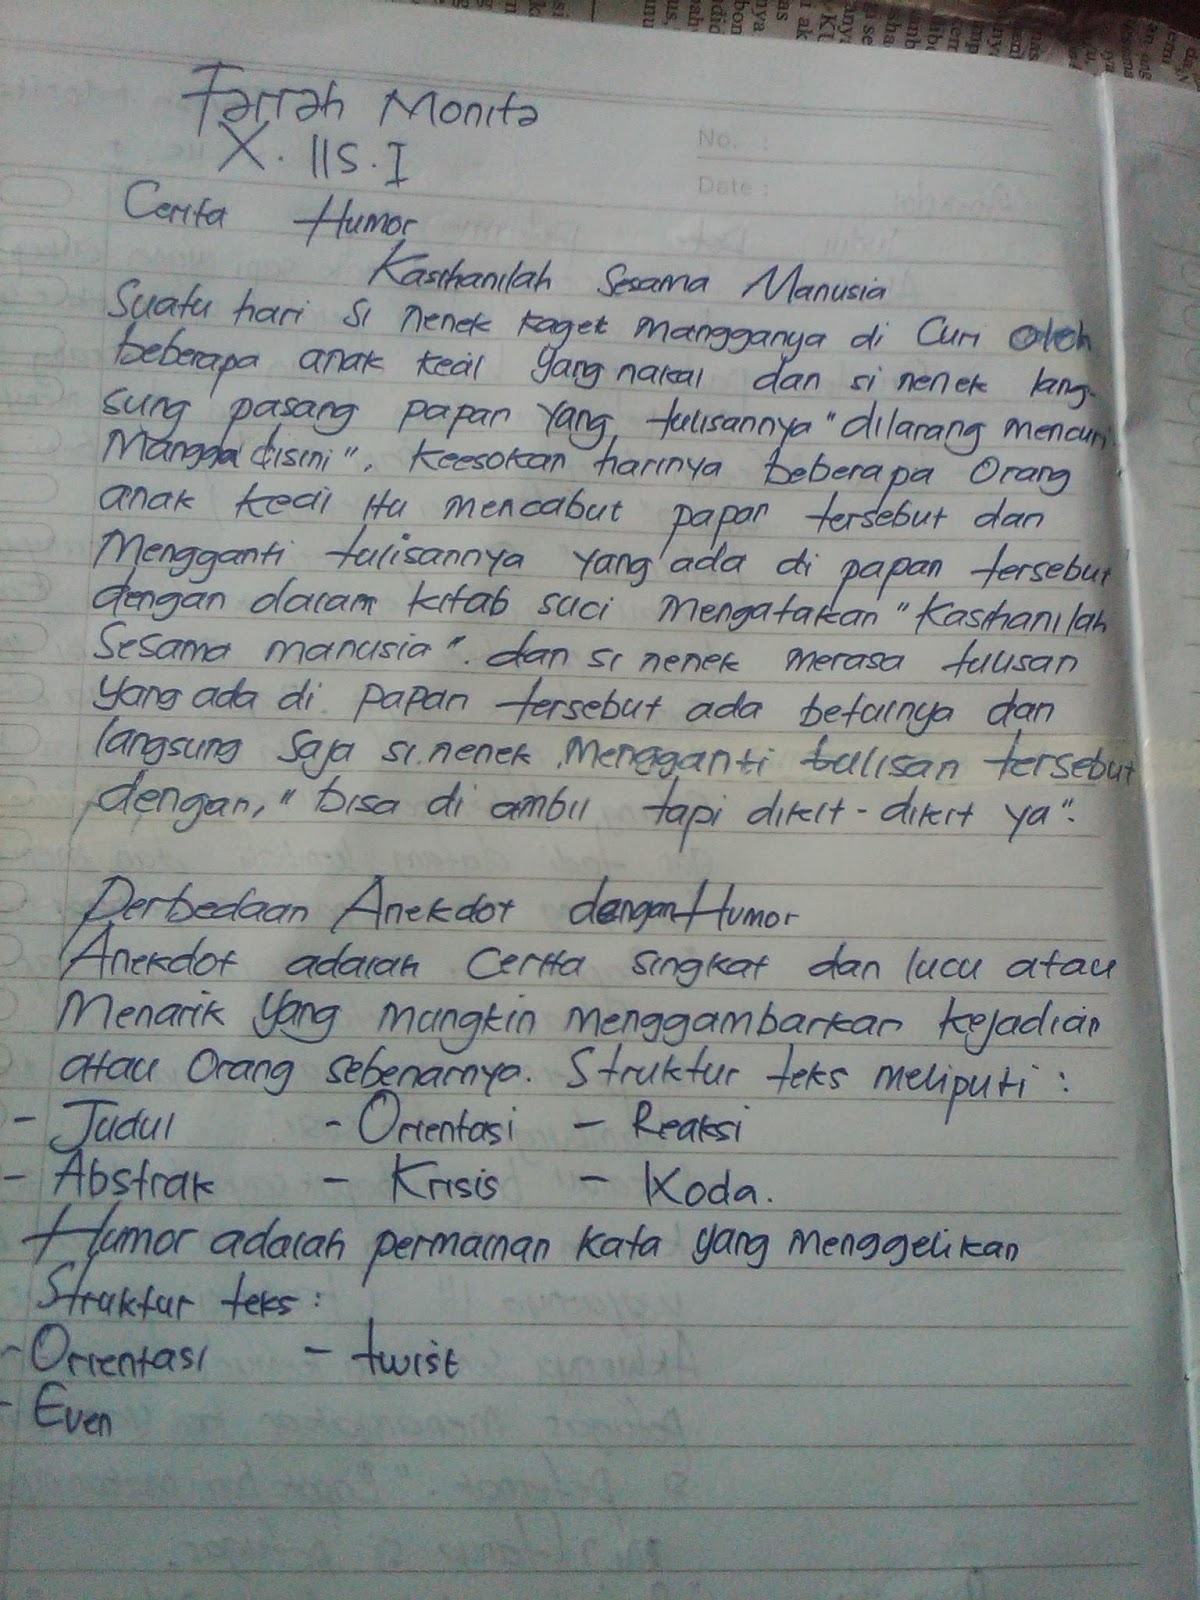 Farrah Monita
X. IIS. I
No. :
Date :
Cerita Humor
Kasihanilah Sesama Manusia
Suatu hari si nenek kaget mangganya di Curi oleh
beberapa anak kecil yang nakal dan si nenek lang-
sung pasang papan yang tulisannya "dilarang mencuri
Mangga disini". Keesokan harinya beberapa Orang
anak kecil itu mencabut papan tersebut dan
Mengganti tulisannya yang ada di papan tersebut
dengan dalam kitab suci mengatakan "Kasihanilah
Sesama manusia". dan si nenek merasa tulisan
yang ada di papan tersebut ada betulnya dan
langsung saja si nenek mengganti tulisan tersebut
dengan, "bisa di ambil tapi dikit-dikit ya".
Perbedaan Anekdot dengan Humor
Anekdot adalah Cerita singkat dan lucu atau
Menarik yang mungkin menggambarkan kejadian
atau Orang sebenarnya. Struktur teks meliputi :
- Judul - Orientasi - Reaksi
- Abstrak - Krisis - Koda.
Humor adalah permainan kata yang menggelikan
Struktur teks :
- Orientasi - twist
- Even